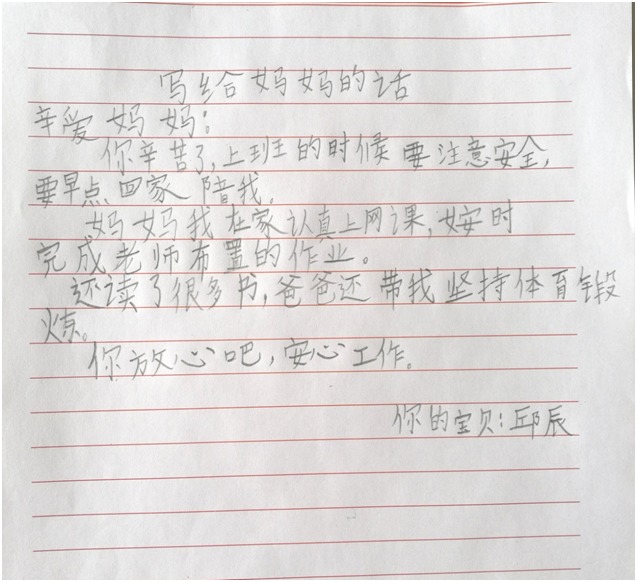 写给妈妈的话
辛爱妈妈:
你辛苦了,上班的时候要注意安全,
要早点回家陪我。
妈妈我在家认真上网课,按时
完成老师布置的作业。
还读了很多书,爸爸还带我坚持体育锻
炼。
你放心吧,安心工作。
你的宝贝:邱辰